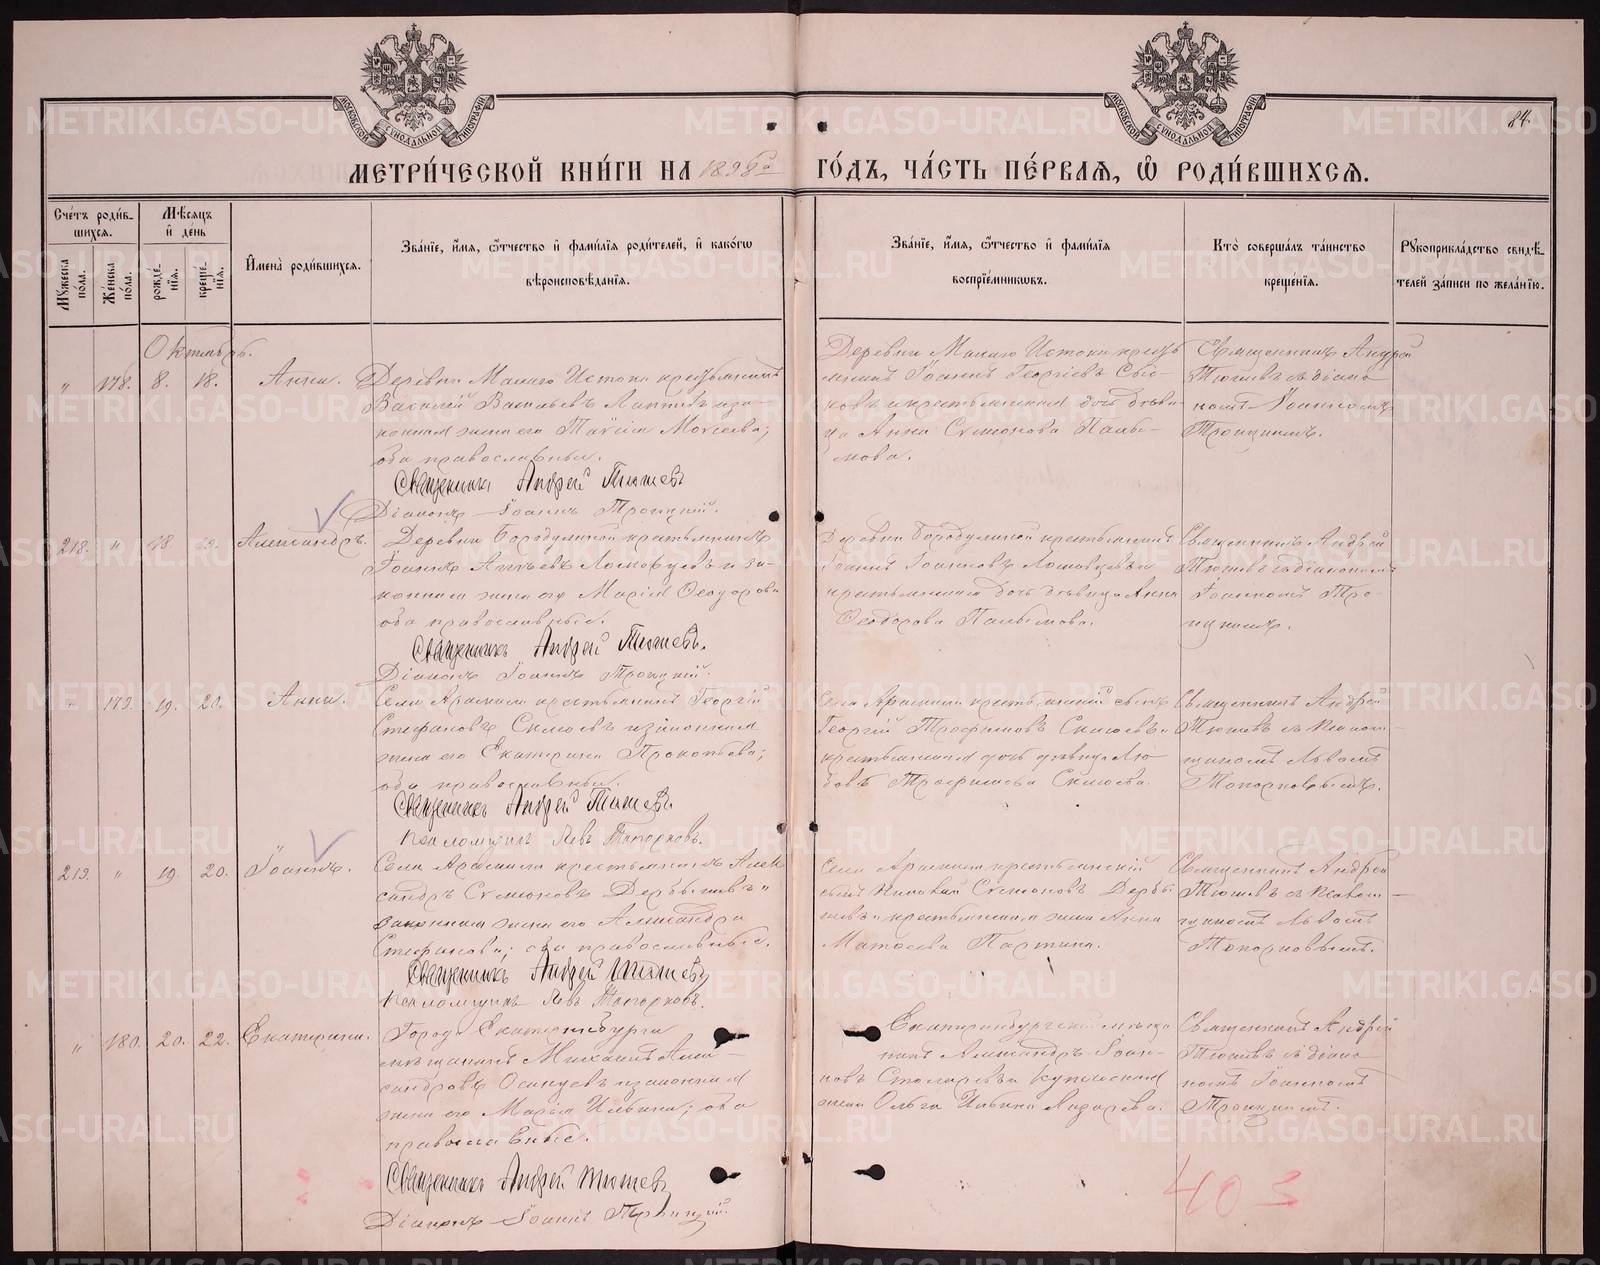 МОСКОВСКОЙ СУНОДАЛЬНОЙ ТИПОГРАФІИ
МОСКОВСКОЙ СУНОДАЛЬНОЙ ТИПОГРАФІИ
84.
МЕТРИ́ЧЕСКОЙ КНИ́ГИ НА 1898 го ГО́ДЪ, ЧА́СТЬ ПЕ́РВАѦ, Ѡ РОДИ́ВШИХСѦ.
Сче́тъ роди́вшихсѧ.
Мꙋжеска по́ла.
Же́нска по́ла.
Мѣ́сѧцъ и҆ де́нь
рожде́нїѧ.
креще́нїѧ.
И҆мена̀ роди́вшихсѧ.
Зва́нїе, и҆́мѧ, ѻ҆́тчество и҆ фами́лїѧ роди́телей, и҆ како́гѡ
вѣроисповѣ́данїѧ.
Зва́нїе, и҆́мѧ, ѻ҆́тчество и҆ фами́лїѧ
воспрїе́мникѡвъ.
Кто̀ соверша́лъ та́инство
креще́нїѧ.
Рꙋкоприкла́дство свидѣ́-
телей за́писи по жела́нїю.
Октябрь.
" 178. 8. 18. Анна.
Деревни Малаго Истока крестьянинъ
Василій Васильевъ Лаптевъ и за-
конная жена его Таисія Моѵсеева;
оба православные.
Священникъ Андрей Тюшевъ
Діаконъ Іоаннъ Троицкій.
Деревни Малаго Истока кресть
янинъ Іоаннъ Георгіевъ
и крестьянская дочь дѣви-
ца Анна Семіонова Паль-
мова.
Священникъ Андрей
Тюшевъ съ діако
номъ Іоанномъ
Троицкимъ.
218. " 18. 19. Александръ.
Деревни Бородулиной крестьянинъ
Іоаннъ и за-
конная жена его Марія Ѳеодорова
оба православные.
Священникъ Андрей Тюшевъ.
Діаконъ Іоаннъ Троицкій.
Деревни Бородулиной крестьянинъ
Іоаннъ Іоанновъ
крестьянская дочь дѣвица Анна
Ѳеодорова Пальмова.
Священникъ Андрей
Тюшевъ съ діакономъ
Іоанномъ Тро-
ицкимъ.
" 179. 19. 20. Анна.
Села Арамили крестьянинъ Георгій
Стефановъ и законная
жена его Екатерина Прокопьева;
оба православные.
Священникъ Андрей Тюшевъ
Псаломщикъ Левъ Топорковъ.
Села Арамили крестьянскій сынъ
Георгій Трофимовъ
крестьянская дочь дѣвица Лю
бовь Трофимова
Священникъ Андрей
Тюшевъ съ псалом-
щикомъ Львомъ
Топорковымъ.
219. " 19. 20. Іоаннъ.
Села Арамили крестьянинъ Алек
сандръ Семіоновъ Дерябинъ и
законная жена его Александра
Стефанова; оба православные.
Священникъ Андрей Тюшевъ
Псаломщикъ Левъ Топорковъ.
Села Арамили крестьянскій
сынъ Николай Семіоновъ
крестьянская жена Анна
Матѳеева
Священникъ Андрей
Тюшевъ съ псалом-
щикомъ Львомъ
Топорковымъ.
" 180. 20. 22. Екатерина.
Города Екатеринбурга
мѣщанинъ Михаилъ Алек-
сандровъ и законная
жена его Марія Ильина; оба
православные.
Священникъ Андрей Тюшевъ
Діаконъ Іоаннъ Троицкій.
Екатеринбургскій мѣща
нинъ Александръ Іоан-
новъ Столяревъ и купеческая
жена Ольга Лазарева.
Священникъ Андрей
Тюшевъ съ діако
номъ Іоанномъ
Троицкимъ.
403
METRIKI.GASO-URAL.RU